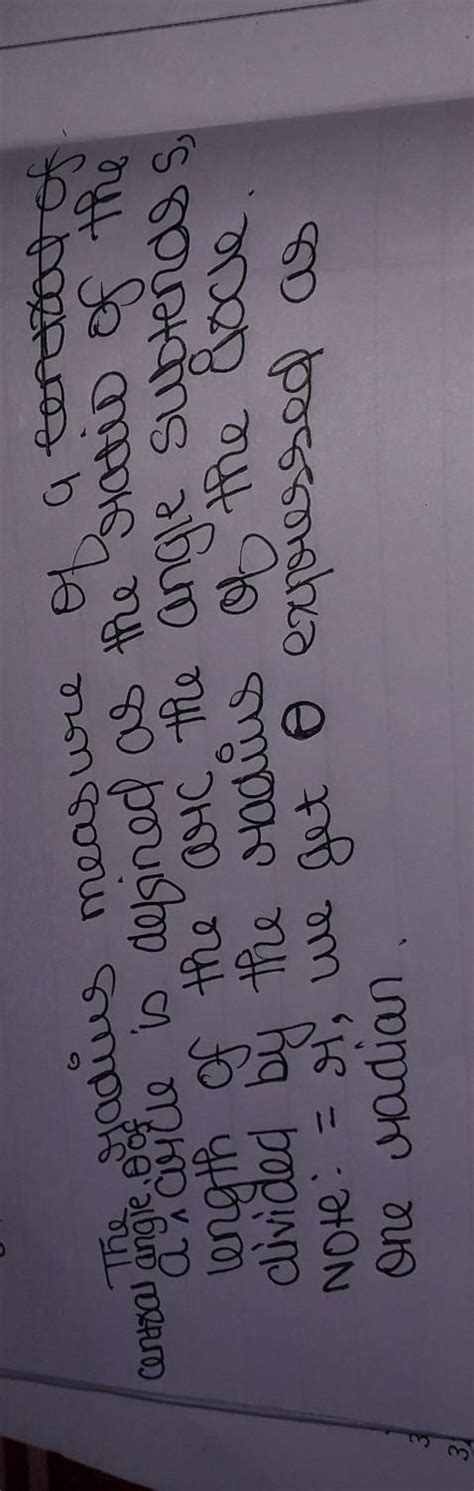 The radius measure of a central of
central angle θ of
a circle is defined as the ratio of the
length of the arc the angle subtends s,
divided by the radius of the circle.
NOTE: = r, we get θ expressed as
one radian.
3
3